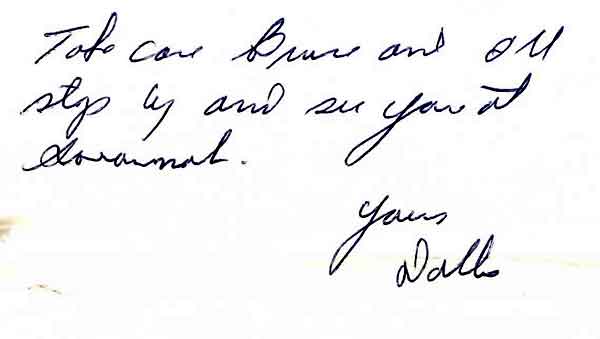 Take care Bruce and I'll
stop by and see you at
Savannah.
Yours
Dallas